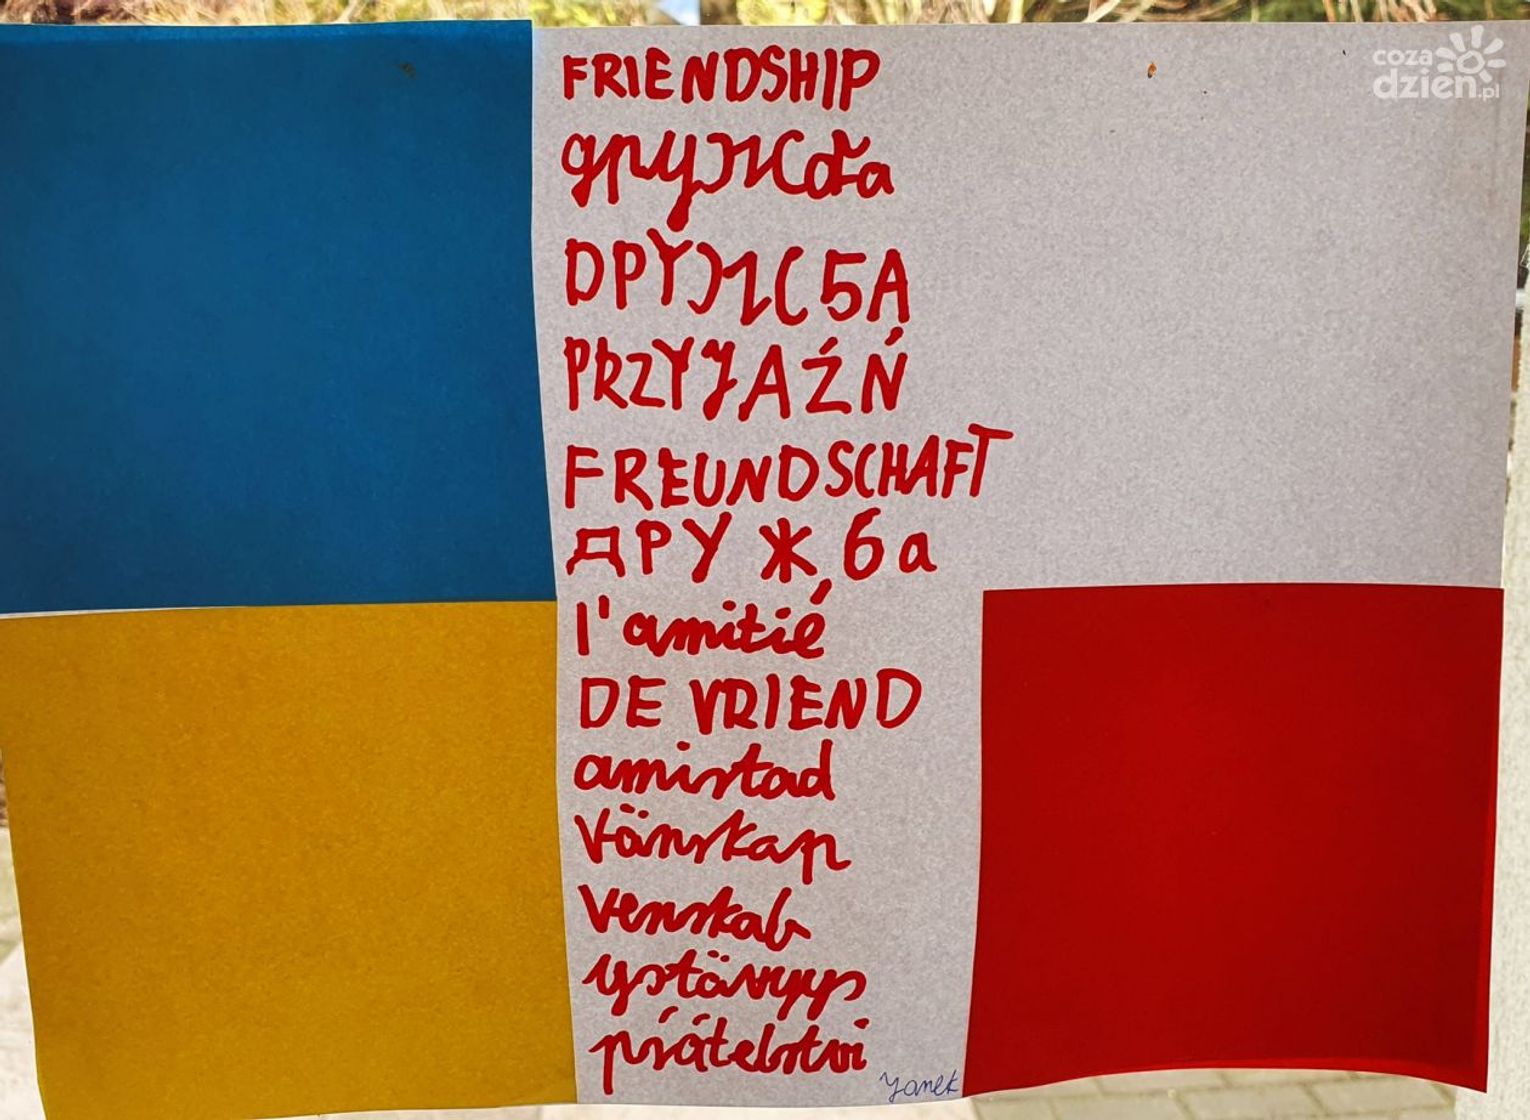 FRIENDSHIP
дружба
DРУЖБА
PRZYJAŹŃ
FREUNDSCHAFT
ДРУЖба
l'amitié
DE VRIEND
amistad
vänskap
venskab
ystävyys
přátelství
Janek
coza
dzień.pl